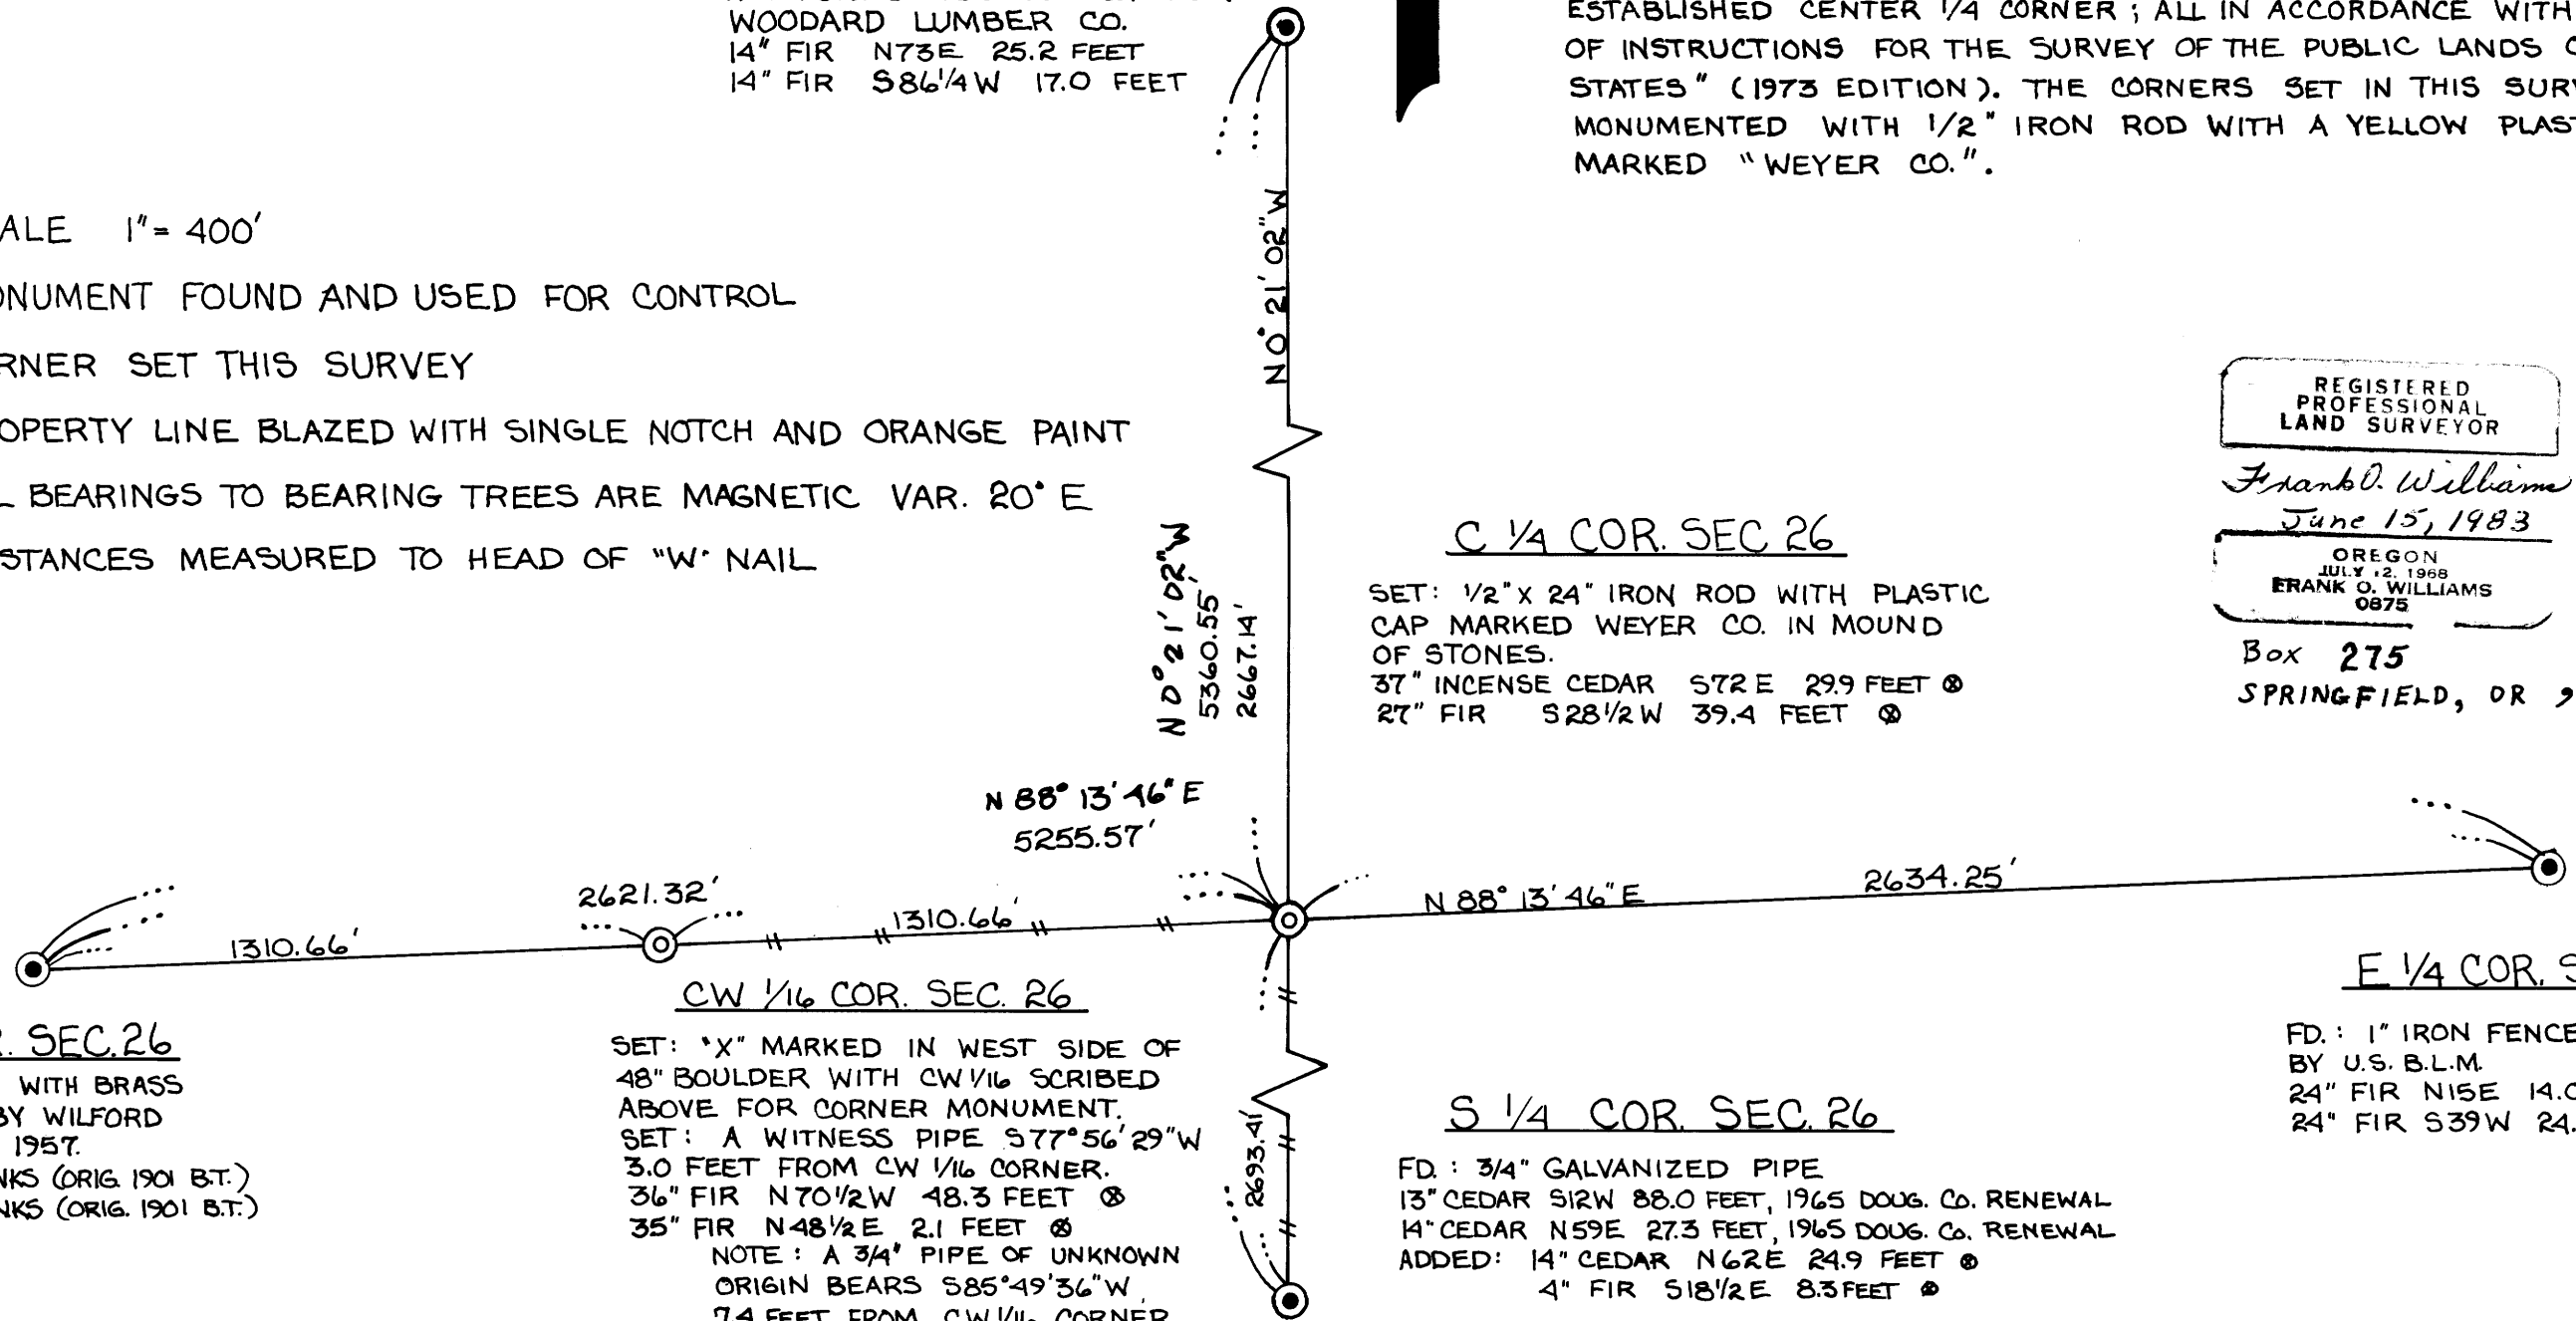 WOODARD LUMBER CO.
14" FIR N73E 25.2 FEET
14" FIR S86 1/4 W 17.0 FEET
ESTABLISHED CENTER 1/4 CORNER ; ALL IN ACCORDANCE WITH
OF INSTRUCTIONS FOR THE SURVEY OF THE PUBLIC LANDS
STATES" (1973 EDITION). THE CORNERS SET IN THIS
MONUMENTED WITH 1/2" IRON ROD WITH A YELLOW
MARKED "WEYER CO.".
1" = 400'
FOUND AND USED FOR CONTROL
SET THIS SURVEY
LINE BLAZED WITH SINGLE NOTCH AND ORANGE PAINT
BEARINGS TO BEARING TREES ARE MAGNETIC VAR. 20° E
MEASURED TO HEAD OF "W" NAIL
N 0° 21' 02" W
N 0° 21' 02" W
5360.55'
2667.14'
REGISTERED
PROFESSIONAL
LAND SURVEYOR
Frank O. Williams
June 15, 1983
OREGON
JULY 12, 1968
FRANK O. WILLIAMS
0875
Box 275
SPRINGFIELD, OR
C 1/4 COR. SEC 26
SET: 1/2" X 24" IRON ROD WITH PLASTIC
CAP MARKED WEYER CO. IN MOUND
OF STONES.
37" INCENSE CEDAR S72 E 29.9 FEET ⊗
27" FIR S28 1/2 W 39.4 FEET ⊗
N 88° 13' 46" E
5255.57'
2621.32'
1310.66'
1310.66'
N 88° 13' 46" E
2634.25'
SEC. 26
WITH BRASS
BY WILFORD
1957.
(ORIG. 1901 B.T.)
(ORIG. 1901 B.T.)
CW 1/16 COR. SEC. 26
SET: "X" MARKED IN WEST SIDE OF
48" BOULDER WITH CW 1/16 SCRIBED
ABOVE FOR CORNER MONUMENT.
SET: A WITNESS PIPE S77°56'29"W
3.0 FEET FROM CW 1/16 CORNER.
36" FIR N70 1/2 W 48.3 FEET ⊗
35" FIR N48 1/2 E 2.1 FEET ⊗
NOTE: A 3/4" PIPE OF UNKNOWN
ORIGIN BEARS S85°49'36"W
7.4 FEET FROM CW 1/16 CORNER
2693.41'
S 1/4 COR. SEC. 26
FD.: 3/4" GALVANIZED PIPE
13" CEDAR S12W 88.0 FEET, 1965 DOUG. CO. RENEWAL
14" CEDAR N59E 27.3 FEET, 1965 DOUG. CO. RENEWAL
ADDED: 14" CEDAR N62E 24.9 FEET ⊗
4" FIR S18 1/2 E 8.3 FEET ⊗
E 1/4 COR.
FD.: 1" IRON FENCE
BY U.S. B.L.M.
24" FIR N15E 14.
24" FIR S39W 24.